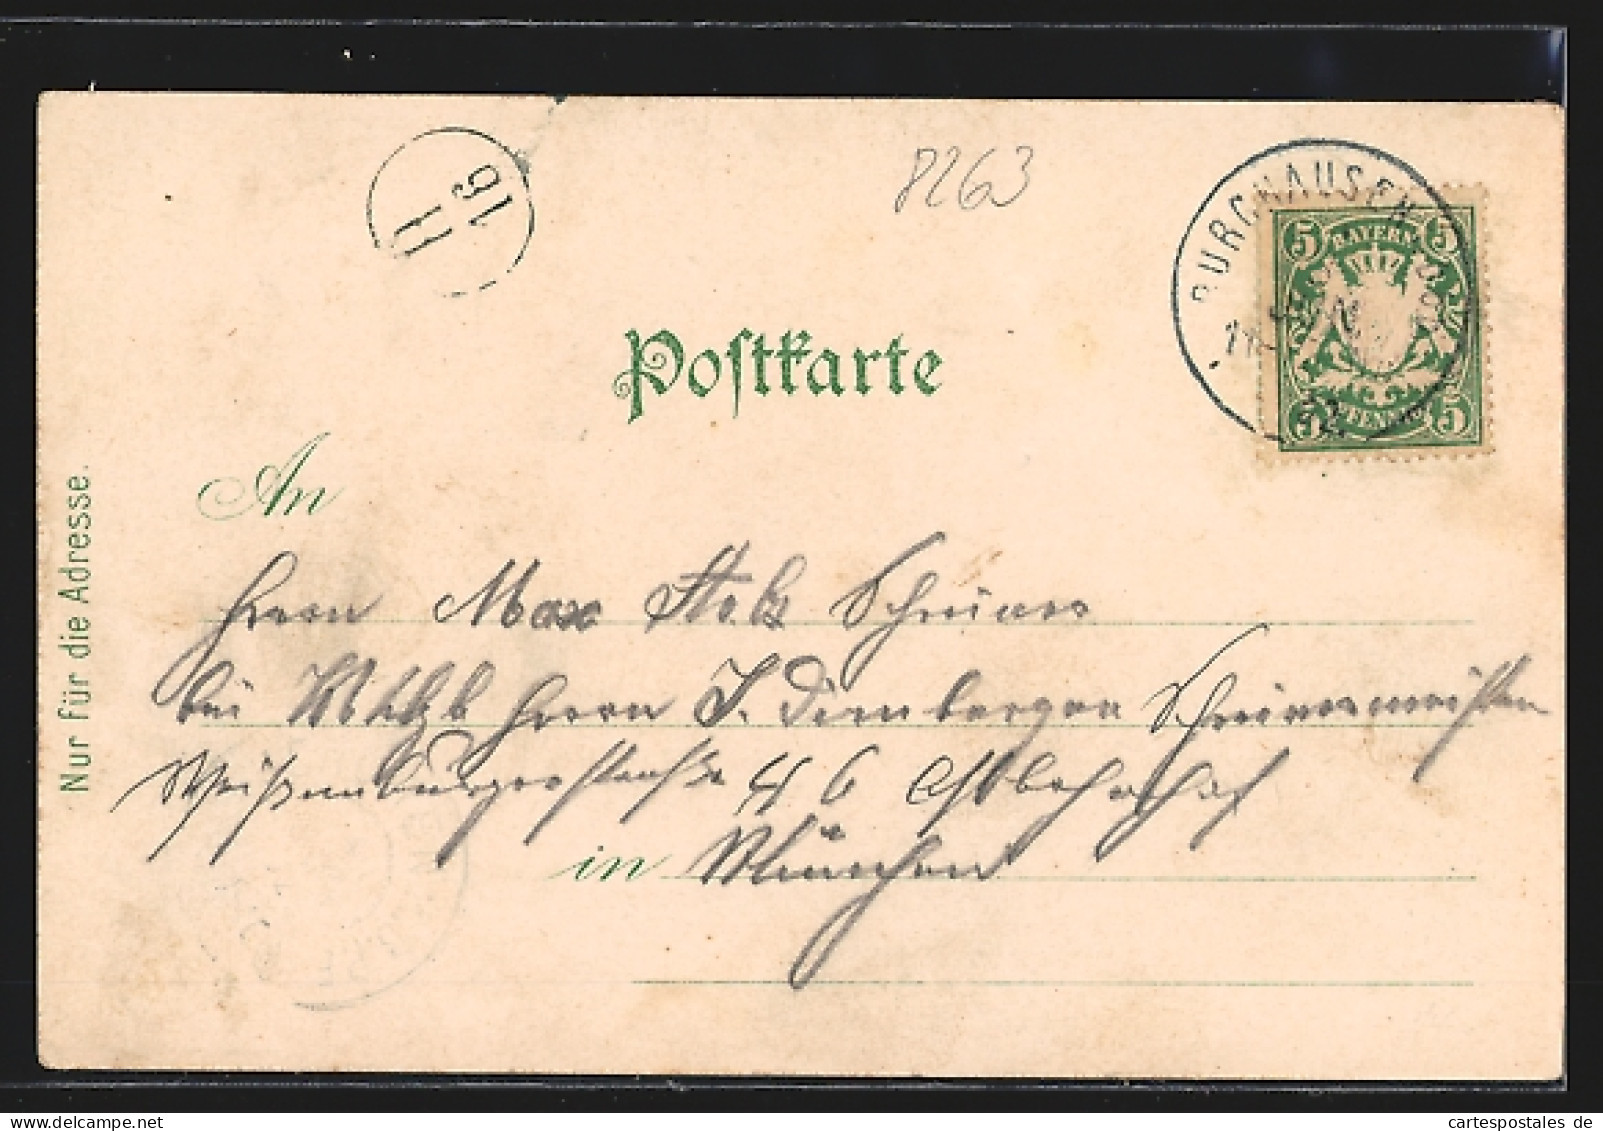 H
16
8263
BURGHAUSEN
11
5 BAYERN 5
5 PFENNIG 5
Postkarte
Nur für die Adresse.
An
Herrn Max Schreiner
bei Herrn J. Dirnberger Schreinermeister
Weißenburgerstraße 46 Ostbahnhof
in München
cartespostales de